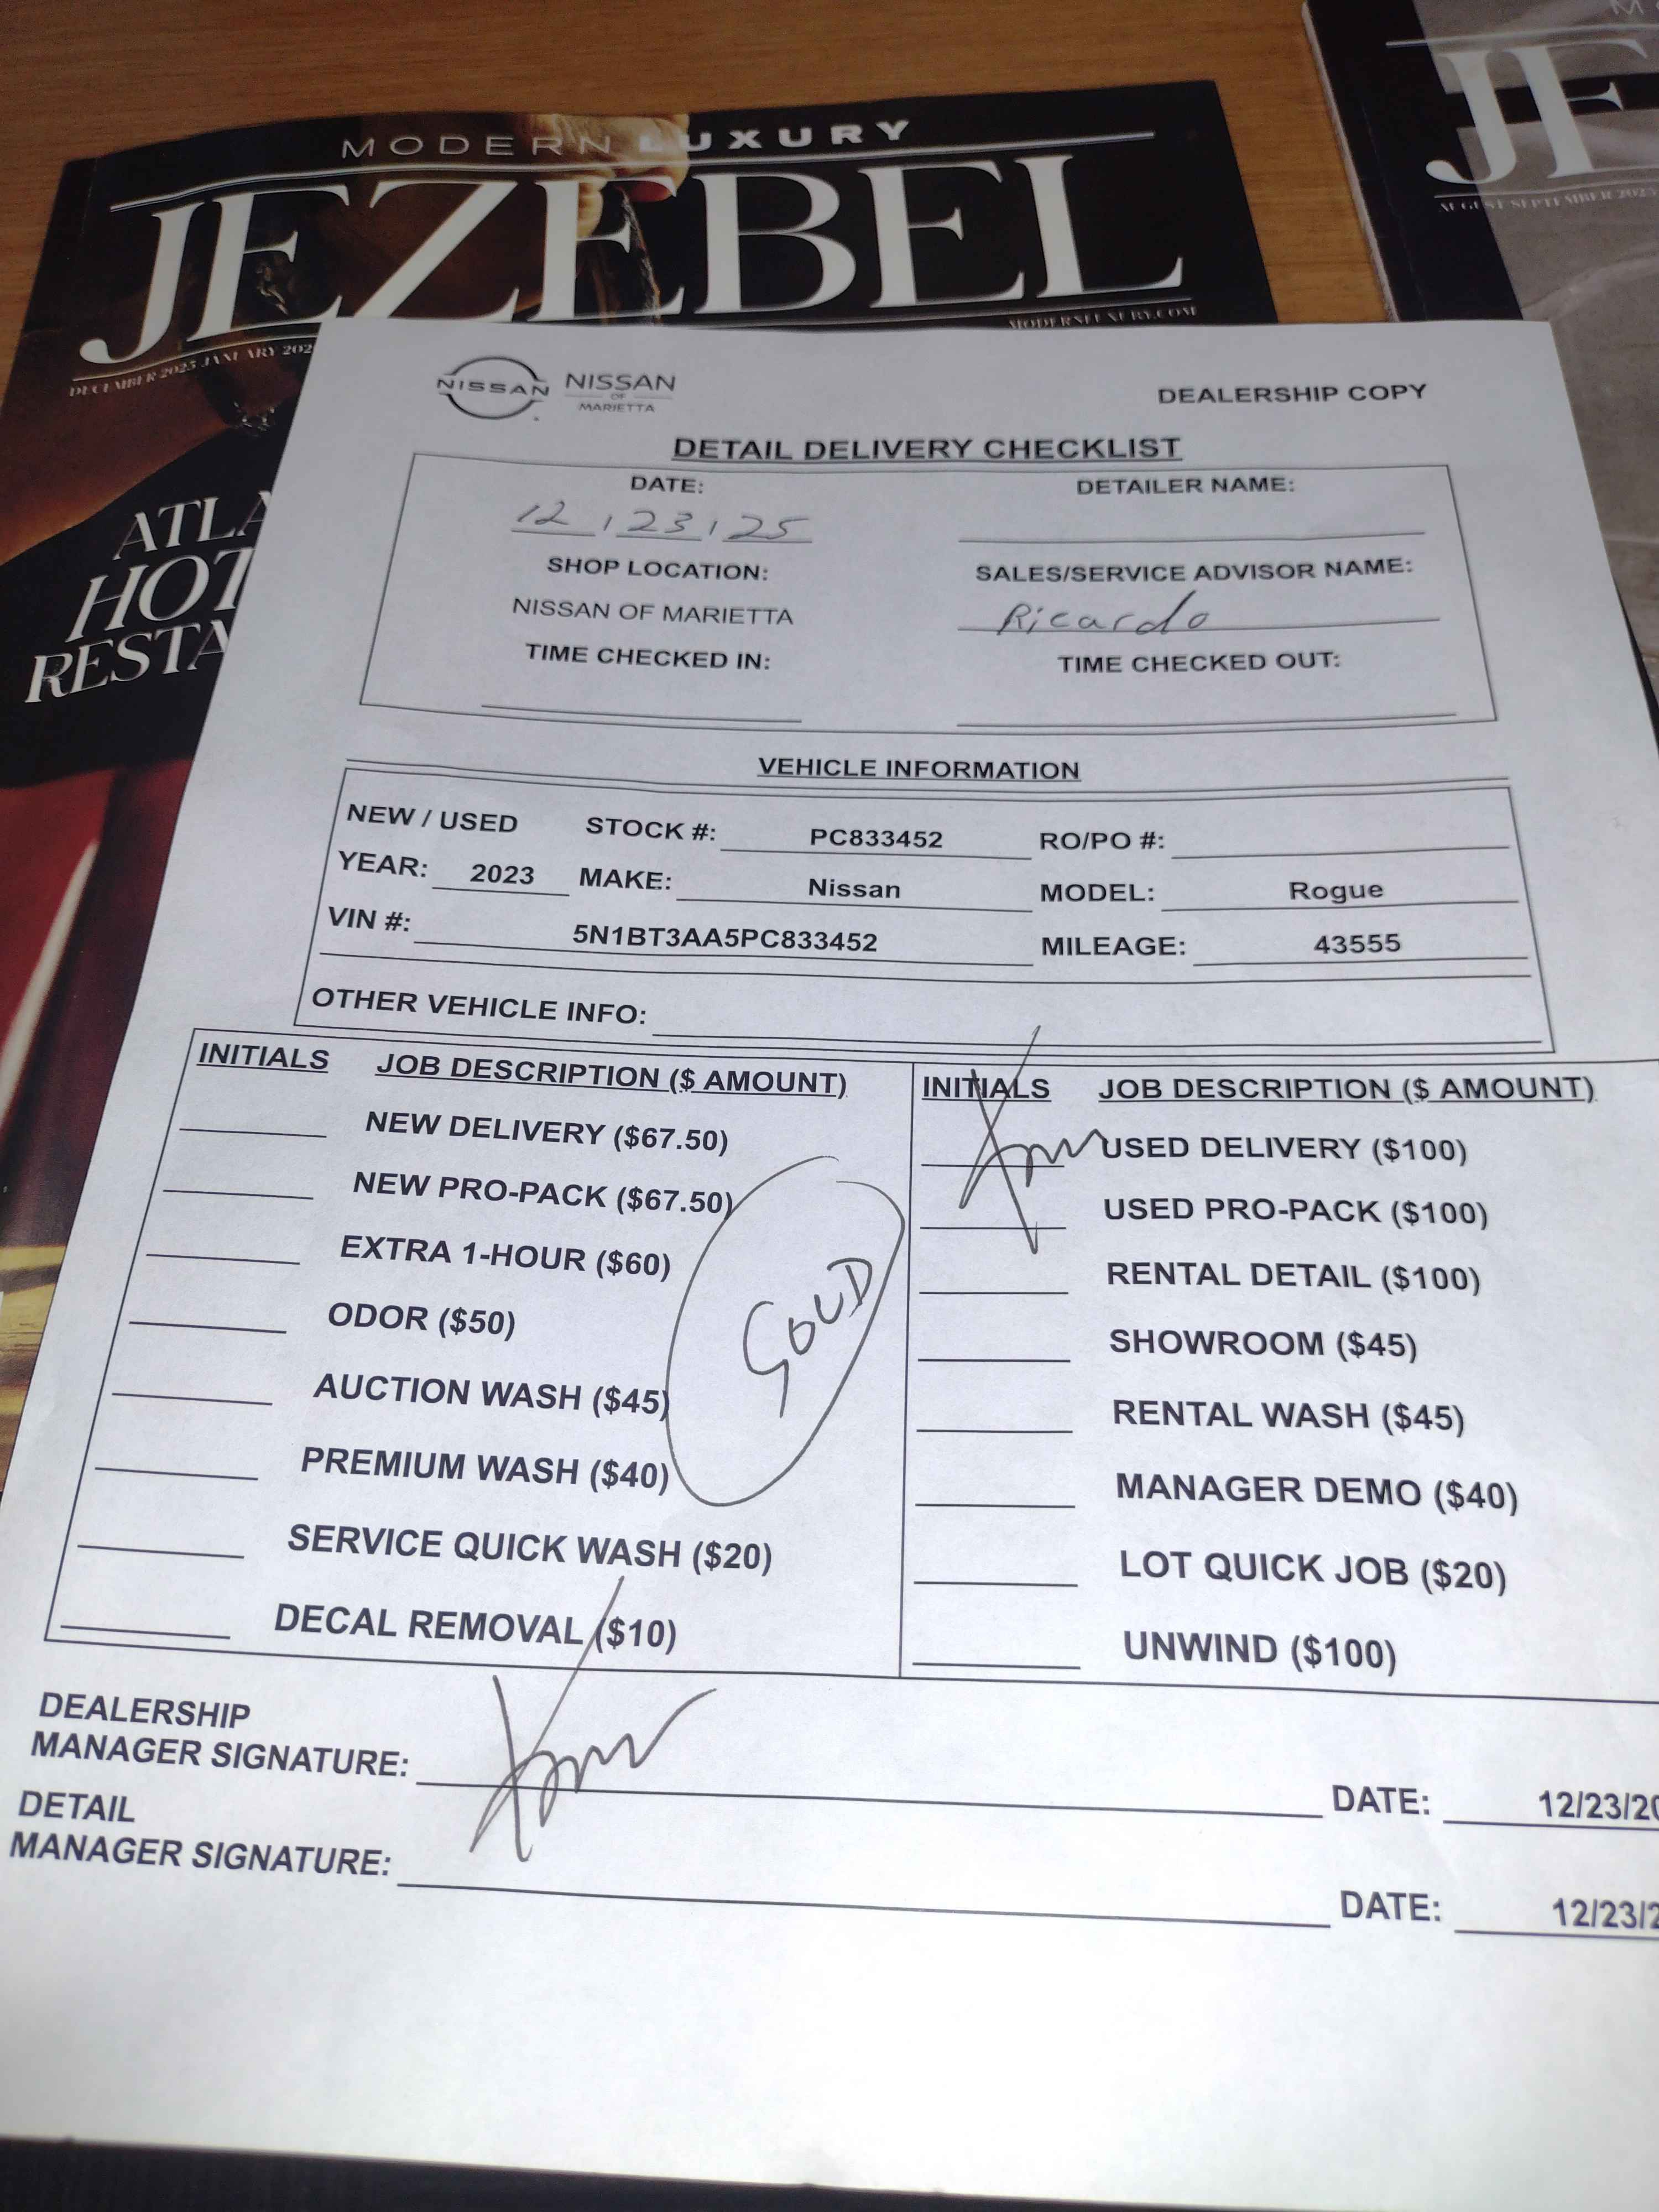 MODERN LUXURY
JEZEBEL
MODERNLUXURY.COM
DECEMBER 2025 JANUARY 202
ATLA
HOT
RESTA
JE
AUGUST SEPTEMBER 2025
NISSAN
NISSAN
OF
MARIETTA
DEALERSHIP COPY
DETAIL DELIVERY CHECKLIST
DATE: DETAILER NAME:
12 / 23 / 25
SHOP LOCATION: SALES/SERVICE ADVISOR NAME:
NISSAN OF MARIETTA Ricardo
TIME CHECKED IN: TIME CHECKED OUT:
VEHICLE INFORMATION
NEW / USED STOCK #: PC833452 RO/PO #:
YEAR: 2023 MAKE: Nissan MODEL: Rogue
VIN #: 5N1BT3AA5PC833452 MILEAGE: 43555
OTHER VEHICLE INFO:
INITIALS JOB DESCRIPTION ($ AMOUNT)
NEW DELIVERY ($67.50)
NEW PRO-PACK ($67.50)
EXTRA 1-HOUR ($60)
ODOR ($50)
AUCTION WASH ($45)
PREMIUM WASH ($40)
SERVICE QUICK WASH ($20)
DECAL REMOVAL ($10)
SOLD
INITIALS JOB DESCRIPTION ($ AMOUNT)
USED DELIVERY ($100)
USED PRO-PACK ($100)
RENTAL DETAIL ($100)
SHOWROOM ($45)
RENTAL WASH ($45)
MANAGER DEMO ($40)
LOT QUICK JOB ($20)
UNWIND ($100)
DEALERSHIP
MANAGER SIGNATURE: DATE: 12/23/20
DETAIL
MANAGER SIGNATURE: DATE: 12/23/2